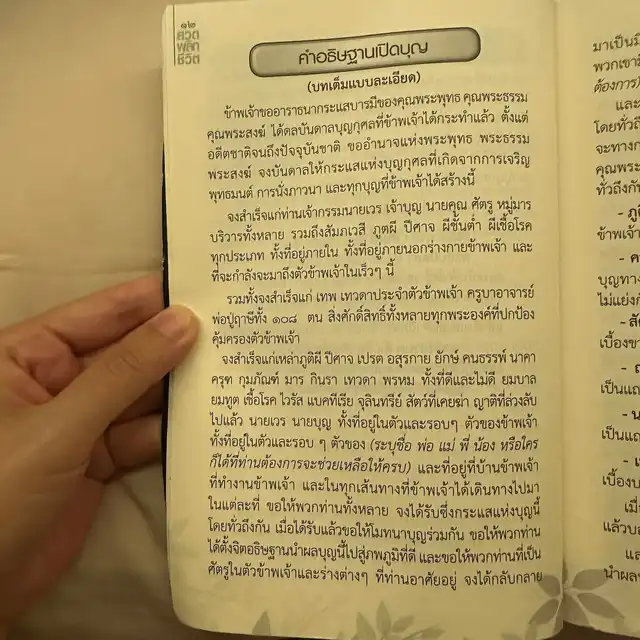 ๑๒
สวด
พลิก
ชีวิต
คำอธิษฐานเปิดบุญ
(บทเต็มแบบละเอียด)
ข้าพเจ้าขออาราธนากระแสบารมีของคุณพระพุทธ คุณพระธรรม
คุณพระสงฆ์ ได้ดลบันดาลบุญกุศลที่ข้าพเจ้าได้กระทำแล้ว ตั้งแต่
อดีตชาติจนถึงปัจจุบันชาติ ขออำนาจแห่งพระพุทธ พระธรรม
พระสงฆ์ จงบันดาลให้กระแสแห่งบุญกุศลที่เกิดจากการเจริญ
พุทธมนต์ การนั่งภาวนา และทุกบุญที่ข้าพเจ้าได้สร้างนี้
จงสำเร็จแก่ท่านเจ้ากรรมนายเวร เจ้าบุญ นายคุณ ศัตรู หมู่มาร
บริวารทั้งหลาย รวมถึงสัมภเวสี ภูตผี ปีศาจ ผีชั้นต่ำ ผีเชื้อโรค
ทุกประเภท ทั้งที่อยู่ภายใน ทั้งที่อยู่ภายนอกร่างกายข้าพเจ้า และ
ที่จะกำลังจะมาถึงตัวข้าพเจ้าในเร็วๆ นี้
รวมทั้งจงสำเร็จแก่ เทพ เทวดาประจำตัวข้าพเจ้า ครูบาอาจารย์
พ่อปู่ฤาษีทั้ง ๑๐๘ ตน สิ่งศักดิ์สิทธิ์ทั้งหลายทุกพระองค์ที่ปกป้อง
คุ้มครองตัวข้าพเจ้า
จงสำเร็จแก่เหล่าภูติผี ปีศาจ เปรต อสุรกาย ยักษ์ คนธรรพ์ นาคา
ครุฑ กุมภัณฑ์ มาร กินรา เทวดา พรหม ทั้งที่ดีและไม่ดี ยมบาล
ยมทูต เชื้อโรค ไวรัส แบคทีเรีย จุลินทรีย์ สัตว์ที่เคยฆ่า ญาติที่ล่วงลับ
ไปแล้ว นายเวร นายบุญ ทั้งที่อยู่ในตัวและรอบๆ ตัวของข้าพเจ้า
ทั้งที่อยู่ในตัวและรอบ ๆ ตัวของ (ระบุชื่อ พ่อ แม่ พี่ น้อง หรือใคร
ก็ได้ที่ท่านต้องการจะช่วยเหลือให้ครบ) และที่อยู่ที่บ้านข้าพเจ้า
ที่ทำงานข้าพเจ้า และในทุกเส้นทางที่ข้าพเจ้าได้เดินทางไปมา
ในแต่ละที่ ขอให้พวกท่านทั้งหลาย จงได้รับซึ่งกระแสแห่งบุญนี้
โดยทั่วถึงกัน เมื่อได้รับแล้วขอให้โมทนาบุญร่วมกัน ขอให้พวกท่าน
ได้ตั้งจิตอธิษฐานนำผลบุญนี้ไปสู่ภพภูมิที่ดี และขอให้พวกท่านที่เป็น
ศัตรูในตัวข้าพเจ้าและร่างต่างๆ ที่ท่านอาศัยอยู่ จงได้กลับกลาย
มาเป็นมิ
พวกเขามี
ต้องการ)
และ
โดยทั่วถึ
จะทางก
คุณพระ
ทั่วถึงกั
- ภูมิ
ข้าพเจ้า
บุญทาง
ไม่แย่งกั
- สั
เบื้องขา
เป็นแถ
- น
เป็นแถ
เบื้องบ
เมื่
แล้วบอ
แล
นำผล